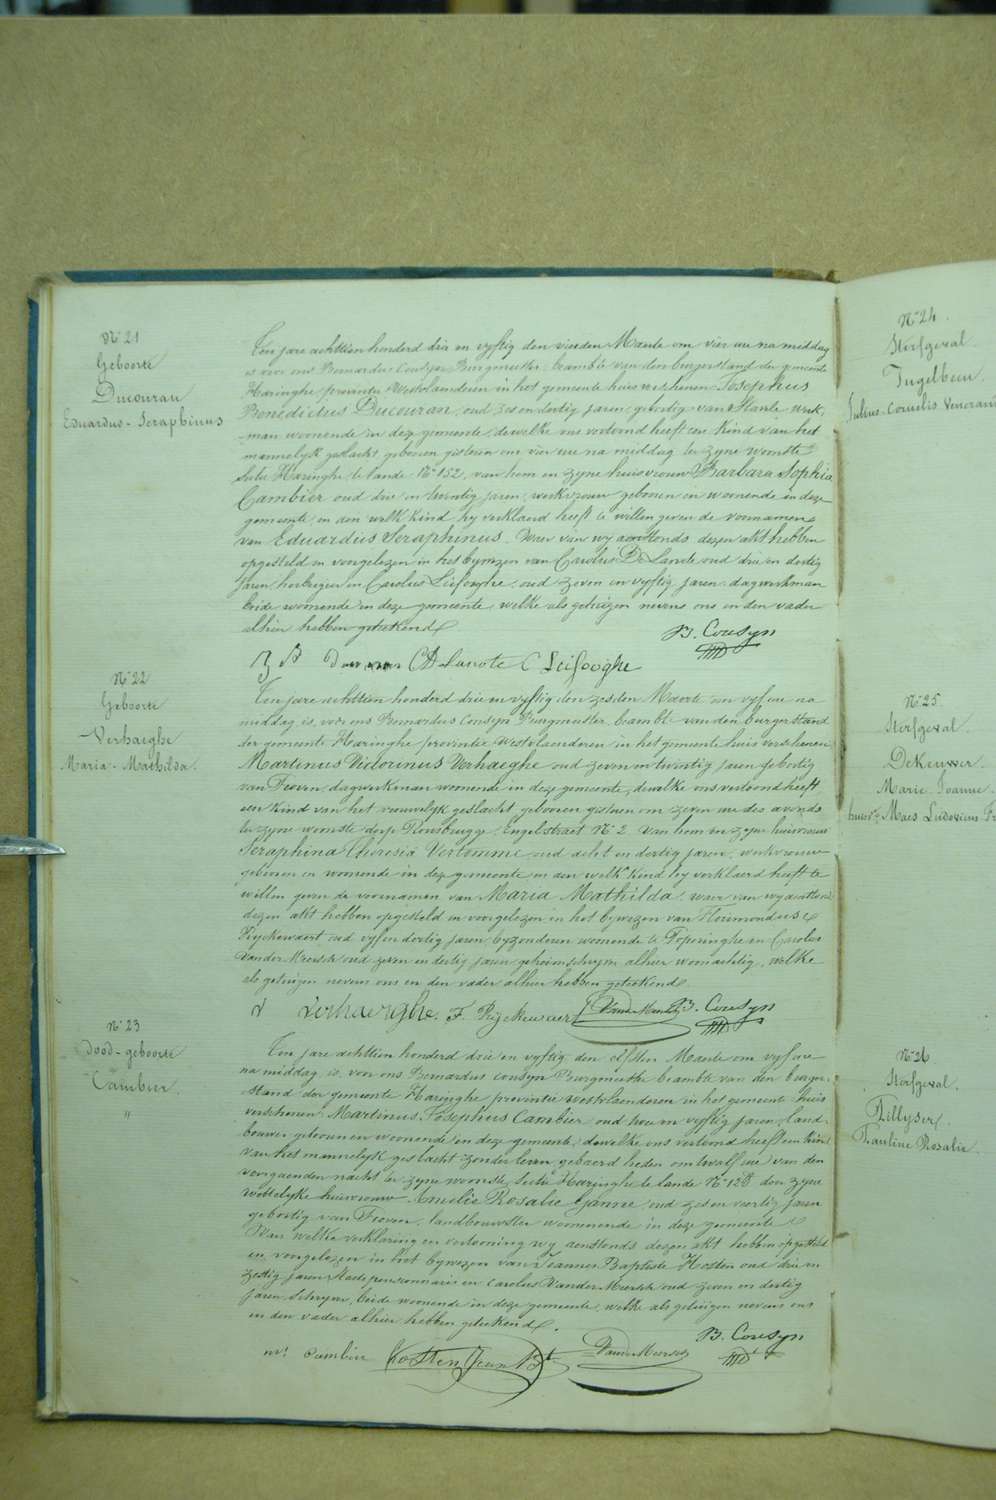 N° 21
Geboorte
Ducouran
Eduardus-Seraphinus
Ten jare achttien honderd drie en vyftig den vierden Maarte om vier ure na middag
is voor ons Bernardus Cousyn Burgmeester, beambte van den burgerstand der gemeente
Haringhe provintie Westvlanderen in het gemeente huis verschenen Josephus
Benedictus Ducouran, oud zes en dertig jaren, geboortig van Stavele, werk-
man woonende in deze gemeente, dewelke ons vertoond heeft een kind van het
mannelyk geslacht geboren gisteren om vier ure na middag ter zyne woonste
Sectie Haringhe te lande N° 152, van hem en zyne huisvrouw Barbara Sophia
Cambier oud drie en twintig jaren, werkvrouw geboren en woonende in deze
gemeente, en aan welk kind hy verklaard heeft te willen geven de voornamen
van Eduardus Seraphinus. Waer van wy aenstonds dezen akt hebben
opgesteld en voorgelezen in het bywezen van Carolus De Lanote oud drie en dertig
jaren, herbergier en Carolus Leifooghe, oud zeven en vyftig jaren, dagwerkman
beide woonende in deze gemeente, welke als getuigen nevens ons en den vader
alhier hebben geteekend
B. Cousyn
C D Lanote C Leifooghe
N° 22
Geboorte
Verhaeghe
Maria-Mathilda.
Ten jare achttien honderd drie en vyftig den zesden Maarte om vyf ure na
middag is voor ons Bernardus Cousyn Burgmeester, beambte van den burgerstand
der gemeente Haringhe provintie Westvlaenderen in het gemeente huis verschenen
Martinus Victorinus Verhaeghe oud zeven en twintig jaren geboortig
van Proven, dagwerkman woonende in deze gemeente, dewelke ons vertoond heeft
een kind van het vrouwelyk geslacht geboren gisteren om zeven ure des avonds
ter zyne woonste dorp Rousbrugge, Engelstraet N° 2 van hem en zyne huisvrouw
Seraphina Theresia Vertomme, oud acht en dertig jaren, werkvrouw
geboren en woonende in deze gemeente en aan welk kind hy verklaerd heeft te
willen geven de voornamen van Maria Mathilda. waer van wy aenstonds
dezen akt hebben opgesteld en voorgelezen in het bywezen van Florimondus
Ryckewaert oud vyf en dertig jaren, byzonderen woonende te Poperinghe en Carolus
Vander Meersch oud zeven en dertig jaren, geheimschryver alhier woonachtig, welke
als getuigen nevens ons en den vader alhier hebben geteekend.
V Verhaeghe. F. Ryckewaert VanderMeersch B. Cousyn
N° 23
Dood-geboorte
Cambier.
"
Ten jare achttien honderd drie en vyftig, den elfsten Maarte om vyf ure
na middag, is voor ons Bernardus Cousyn Burgmeester beambte van den burger-
stand der gemeente Haringhe provintie Westvlaenderen in het gemeente huis
verschenen Martinus Josephus Cambier oud twee en vyftig jaren, land-
bouwer geboren en woonende in deze gemeente, dewelke ons vertoond heeft een kind
van het mannelyk geslacht zonder leven gebaerd heden om twalf ure van den
voorgaenden nacht ter zyne woonste Sectie Haringhe te lande N° 128 door zyne
wettelyke huisvrouw Amelie Rosalie Ganne, oud zes en veertig jaren
geboortig van Proven, landbouwster woonende in deze gemeente
Van welke verklaring en vertooning wy aenstonds dezen akt hebben opgesteld
en voorgelezen in het bywezen van Joannes Baptiste Hosten oud drie en
zestig jaren Staetspensionnaris en Carolus Vander Meersch oud zeven en dertig
jaren, schryver, beide woonende in deze gemeente, welke als getuigen nevens ons
en den vader alhier hebben geteekend.
B. Cousyn
m. Cambier Hosten Jean Bte VanderMeersch
N° 24.
Sterfgeval.
Ingelbeen.
Julius-Cornelis Venerand
N° 25
Sterfgeval.
DeKeuwer.
Marie-Joanne
huisv: Maes Ludovicus Fr
N° 26
Sterfgeval.
Tillyser.
Pauline Rosalie.